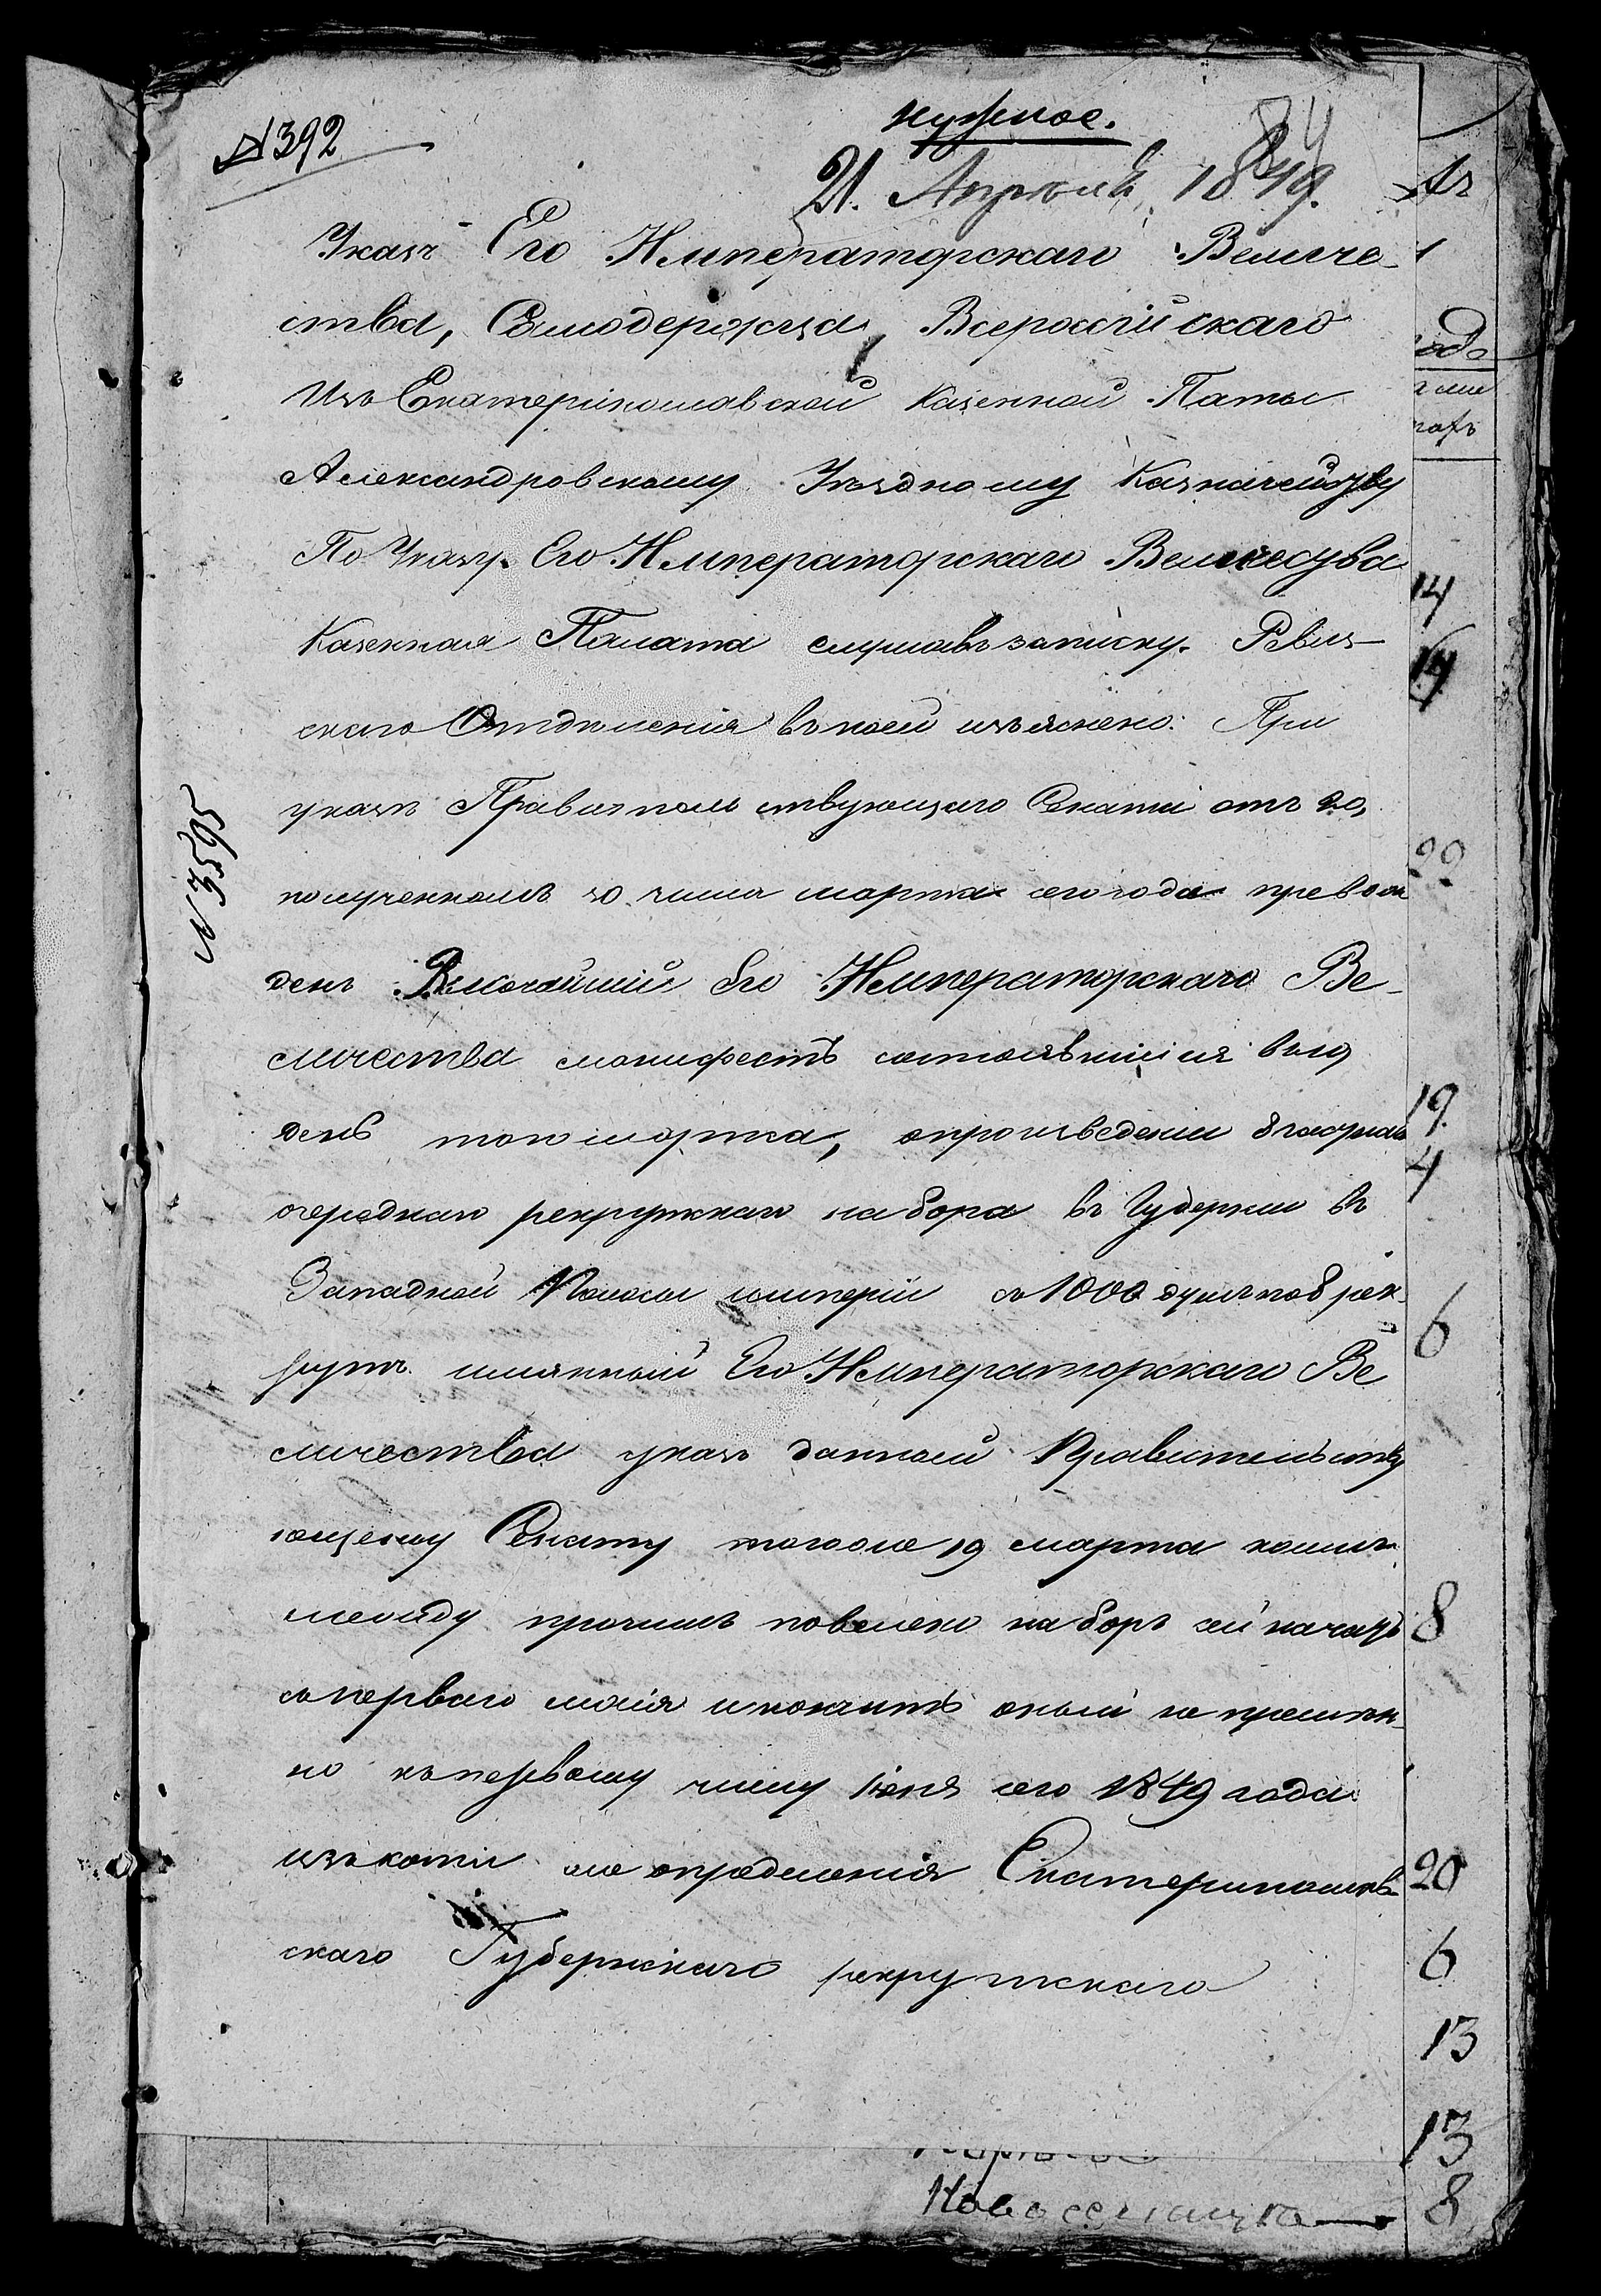 нужное.
84
№ 392
21. Апреля 1849.
Указъ Его Императорскаго Величе-
ства, Самодержца Всероссійскаго
Изъ Екатеринославской Казенной Палаты
Александровскому Уѣздному Казначейству
По Указу Его Императорскаго Величества
Казенная Палата слушавъ записку Ревиз-
скаго Отдѣленія въ коей изъяснено: При
указѣ Правительствующаго Сената отъ 20,
полученномъ 30 числа марта сего года препровож
денъ Высочайшій Его Императорскаго Ве-
личества манифестъ состоявшійся въ 19
день того марта, о произведеніи 8 частнаго
очереднаго рекрутскаго набора въ Губерніи въ
Западной Полосы имперіи съ 1000 душъ по 8 рек-
рутъ имянный Его Императорскаго Ве
личества указъ данный Правительству
ющему Сенату тогоже 19 марта коимъ
между прочимъ повелено наборъ сей начать
съ перваго маія и кончить оный не премѣн-
но къ первому числу Іюня сего 1849 года
изъ копіи же опредѣленія Екатеринослав-
скаго Губернскаго рекрутскаго
№ 3595
1
14
14
20
19
4
6
8
20
6
13
13
Новоселицка 8